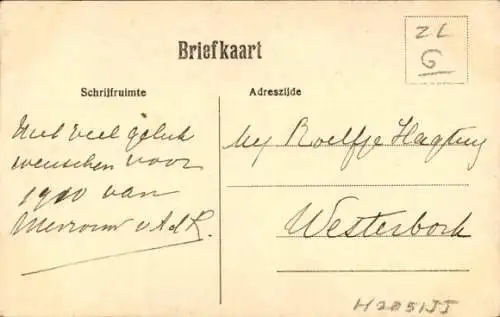 ZL
G
Briefkaart
Schrijfruimte
Adreszijde
Met veel geluk
wenschen voor
1910 van
Mevrouw v.d.K.
Mej Roelfje Hagting
Westerbork
H2851JJ